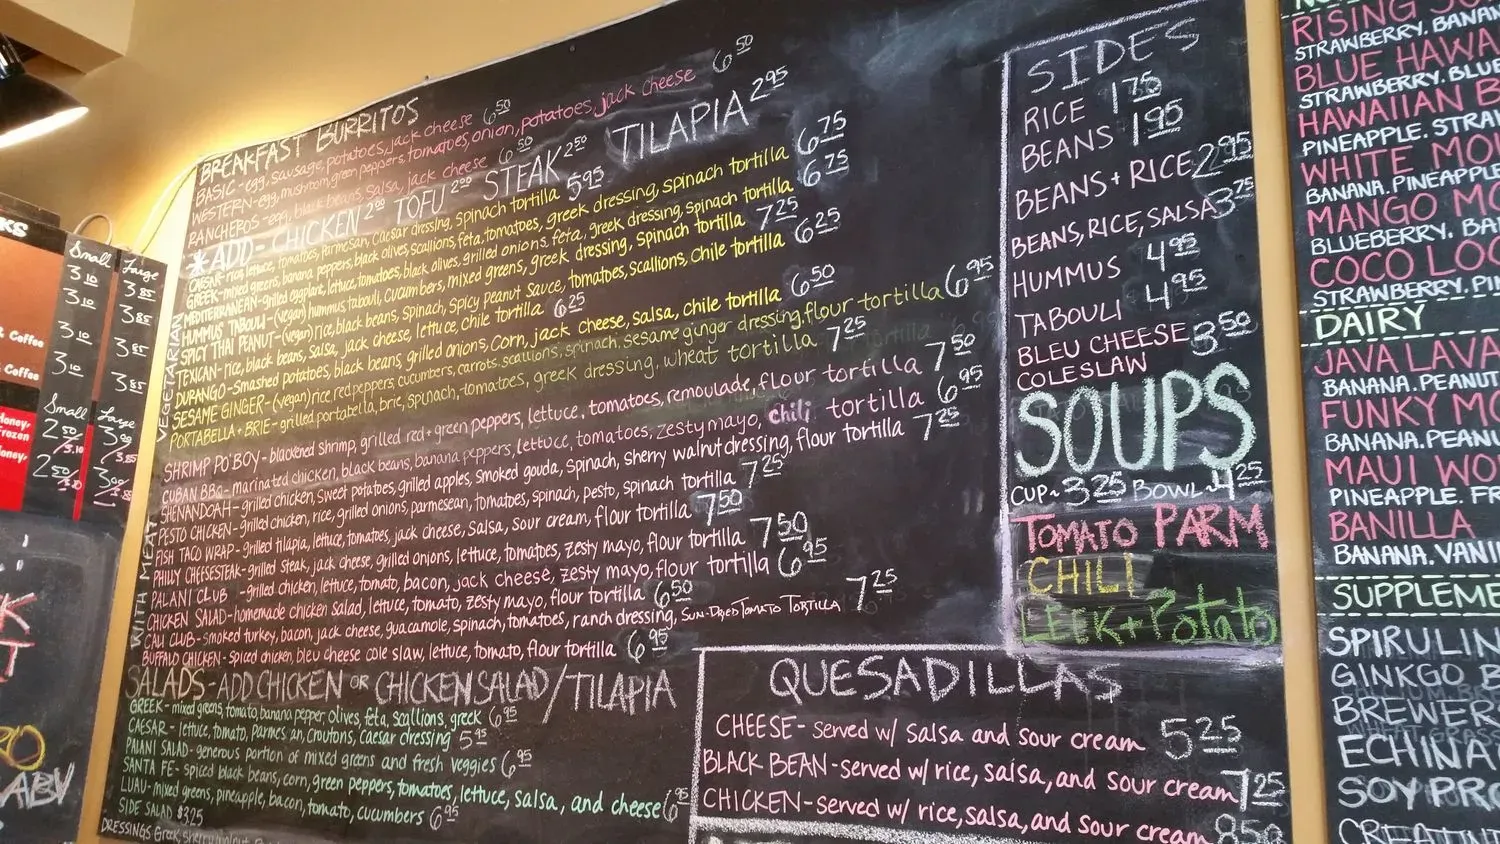 KS
Small
Large
3.10
3.85
3.10
3.85
& Coffee
3.10
3.85
& Coffee
3.10
3.85
Small
Large
Honey-
Frozen
Honey-
BREAKFAST BURRITOS
BASIC - egg, sausage, potatoes, jack cheese 6.50
WESTERN - egg, mushroom, green peppers, tomatoes, onion, potatoes, jack cheese 6.50
RANCHEROS - egg, black beans, salsa, jack cheese 6.50
*ADD - CHICKEN 2.00 TOFU 2.00 STEAK 2.50 TILAPIA 2.95
VEGETARIAN
CAESAR - rice, lettuce, tomatoes, Parmesan, caesar dressing, spinach tortilla 5.95
GREEK - mixed greens, banana peppers, black olives, scallions, feta, tomatoes, greek dressing, spinach tortilla 6.75
MEDITERRANEAN - grilled eggplant, lettuce, tomatoes, black olives, grilled onions, feta, greek dressing, spinach tortilla 6.75
HUMMUS TABOULI - (vegan) hummus, tabouli, cucumbers, mixed greens, greek dressing, spinach tortilla 7.25
SPICY THAI PEANUT - (vegan) rice, black beans, spinach, spicy peanut sauce, tomatoes, scallions, chile tortilla 6.25
TEXICAN - rice, black beans, salsa, jack cheese, lettuce, chile tortilla 6.25
DURANGO - smashed potatoes, black beans, grilled onions, corn, jack cheese, salsa, chile tortilla 6.50
SESAME GINGER - (vegan) rice, red peppers, cucumbers, carrots, scallions, spinach, sesame ginger dressing, flour tortilla 6.95
PORTABELLA + BRIE - grilled portabella, brie, spinach, tomatoes, greek dressing, wheat tortilla 7.25
WITH MEAT
SHRIMP PO'BOY - blackened shrimp, grilled red + green peppers, lettuce, tomatoes, remoulade, flour tortilla 7.50
CUBAN BBQ - marinated chicken, black beans, banana peppers, lettuce, tomatoes, zesty mayo, chili tortilla 6.95
SHENANDOAH - grilled chicken, sweet potatoes, grilled apples, smoked gouda, spinach, sherry walnut dressing, flour tortilla 7.25
PESTO CHICKEN - grilled chicken, rice, grilled onions, parmesean, tomatoes, spinach, pesto, spinach tortilla 7.25
FISH TACO WRAP - grilled tilapia, lettuce, tomatoes, jack cheese, salsa, sour cream, flour tortilla 7.50
PHILLY CHEESESTEAK - grilled steak, jack cheese, grilled onions, lettuce, tomatoes, zesty mayo, flour tortilla 7.50
PALANI CLUB - grilled chicken, lettuce, tomato, bacon, jack cheese, zesty mayo, flour tortilla 6.95
CHICKEN SALAD - homemade chicken salad, lettuce, tomato, zesty mayo, flour tortilla 6.50
CALI CLUB - smoked turkey, bacon, jack cheese, guacamole, spinach, tomatoes, ranch dressing, SUN-DRIED TOMATO TORTILLA 7.25
BUFFALO CHICKEN - spiced chicken, bleu cheese cole slaw, lettuce, tomato, flour tortilla 6.95
SALADS - ADD CHICKEN OR CHICKEN SALAD/TILAPIA
GREEK - mixed greens, tomato, banana pepper, olives, feta, scallions, greek 6.95
CAESAR - lettuce, tomato, parmesan, croutons, caesar dressing 5.95
PALANI SALAD - generous portion of mixed greens and fresh veggies 6.95
SANTA FE - spiced black beans, corn, green peppers, tomatoes, lettuce, salsa, and cheese 6.95
LUAU - mixed greens, pineapple, bacon, tomato, cucumbers 6.95
SIDE SALAD $3.25
DRESSINGS Greek, sherry walnut
SIDE'S
RICE 1.75
BEANS 1.95
BEANS + RICE 2.95
BEANS, RICE, SALSA 3.75
HUMMUS 4.95
TABOULI 4.95
BLEU CHEESE 3.50
COLESLAW
SOUPS
CUP~3.25 BOWL~4.25
TOMATO PARM
CHILI
LEEK + Potato
QUESADILLAS
CHEESE - served w/ salsa and sour cream 5.25
BLACK BEAN - served w/ rice, salsa, and sour cream 7.25
CHICKEN - served w/ rice, salsa, and sour cream 8.50
RISING
STRAWBERRY. BANAN
BLUE HAWA
STRAWBERRY. BLUE
HAWAIIAN B
PINEAPPLE. STRA
WHITE MO
BANANA. PINEAPPLE
MANGO MO
BLUEBERRY. BA
COCO LOC
STRAWBERRY. PI
DAIRY
JAVA LAVA
BANANA. PEANUT
FUNKY MO
BANANA. PEANU
MAUI WO
PINEAPPLE. FR
BANILLA
BANANA. VANI
SUPPLEME
SPIRULIN
GINKGO B
BREWER
ECHINA
SOY PRO
CREATIN